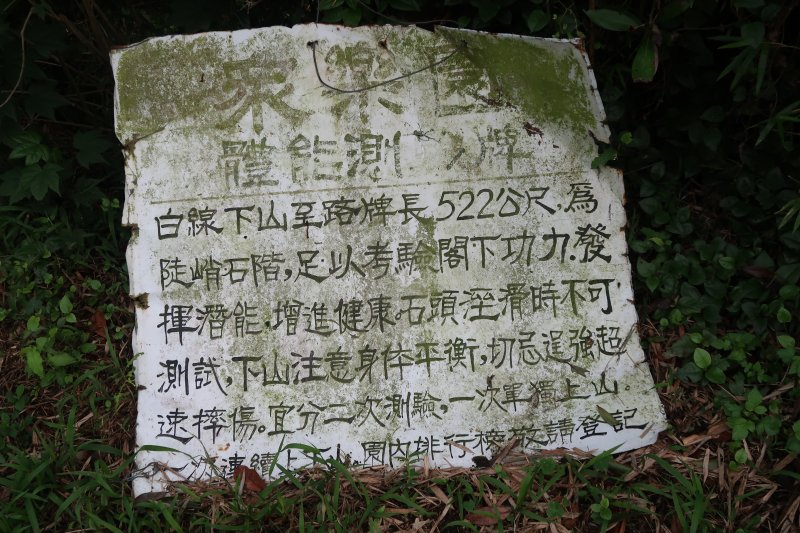 眾樂園
體能測 牌
白線下山至路牌長522公尺,為
陡峭石階,足以考驗閣下功力.發
揮潛能.增進健康。石頭溼滑時不可
測試,下山注意身体平衡,切忌逞強超
速摔傷。宜分二次測驗,一次單獨上山。
一次連續上 園內排行榜敬請登記